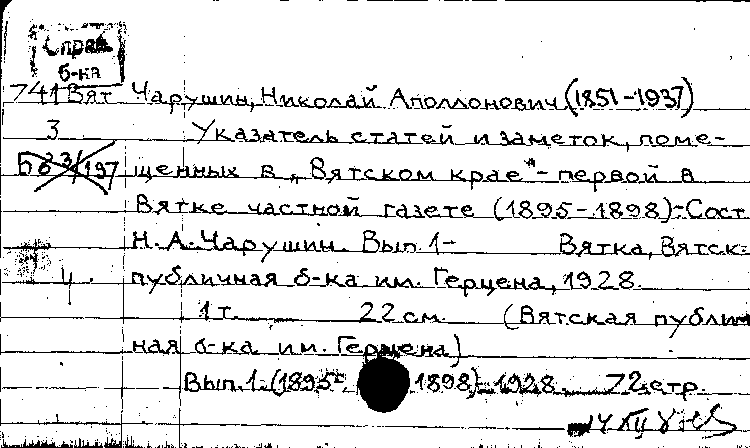 Справ.
б-ка
741 Вят Чарушин, Николай Аполлонович (1851-1937)
3 Указатель статей и заметок, поме-
щенных в „Вятском крае"- первой в
Вятке частной газете (1895-1898)-Сост
Н.А. Чарушин. Вып. 1- Вятка, Вятск.
4. публичная б-ка им. Герцена, 1928.
1 т. 22 см. (Вятская публич
ная б-ка им. Герцена)
Вып. 1. (1895- 1898)-1928. 72 стр.